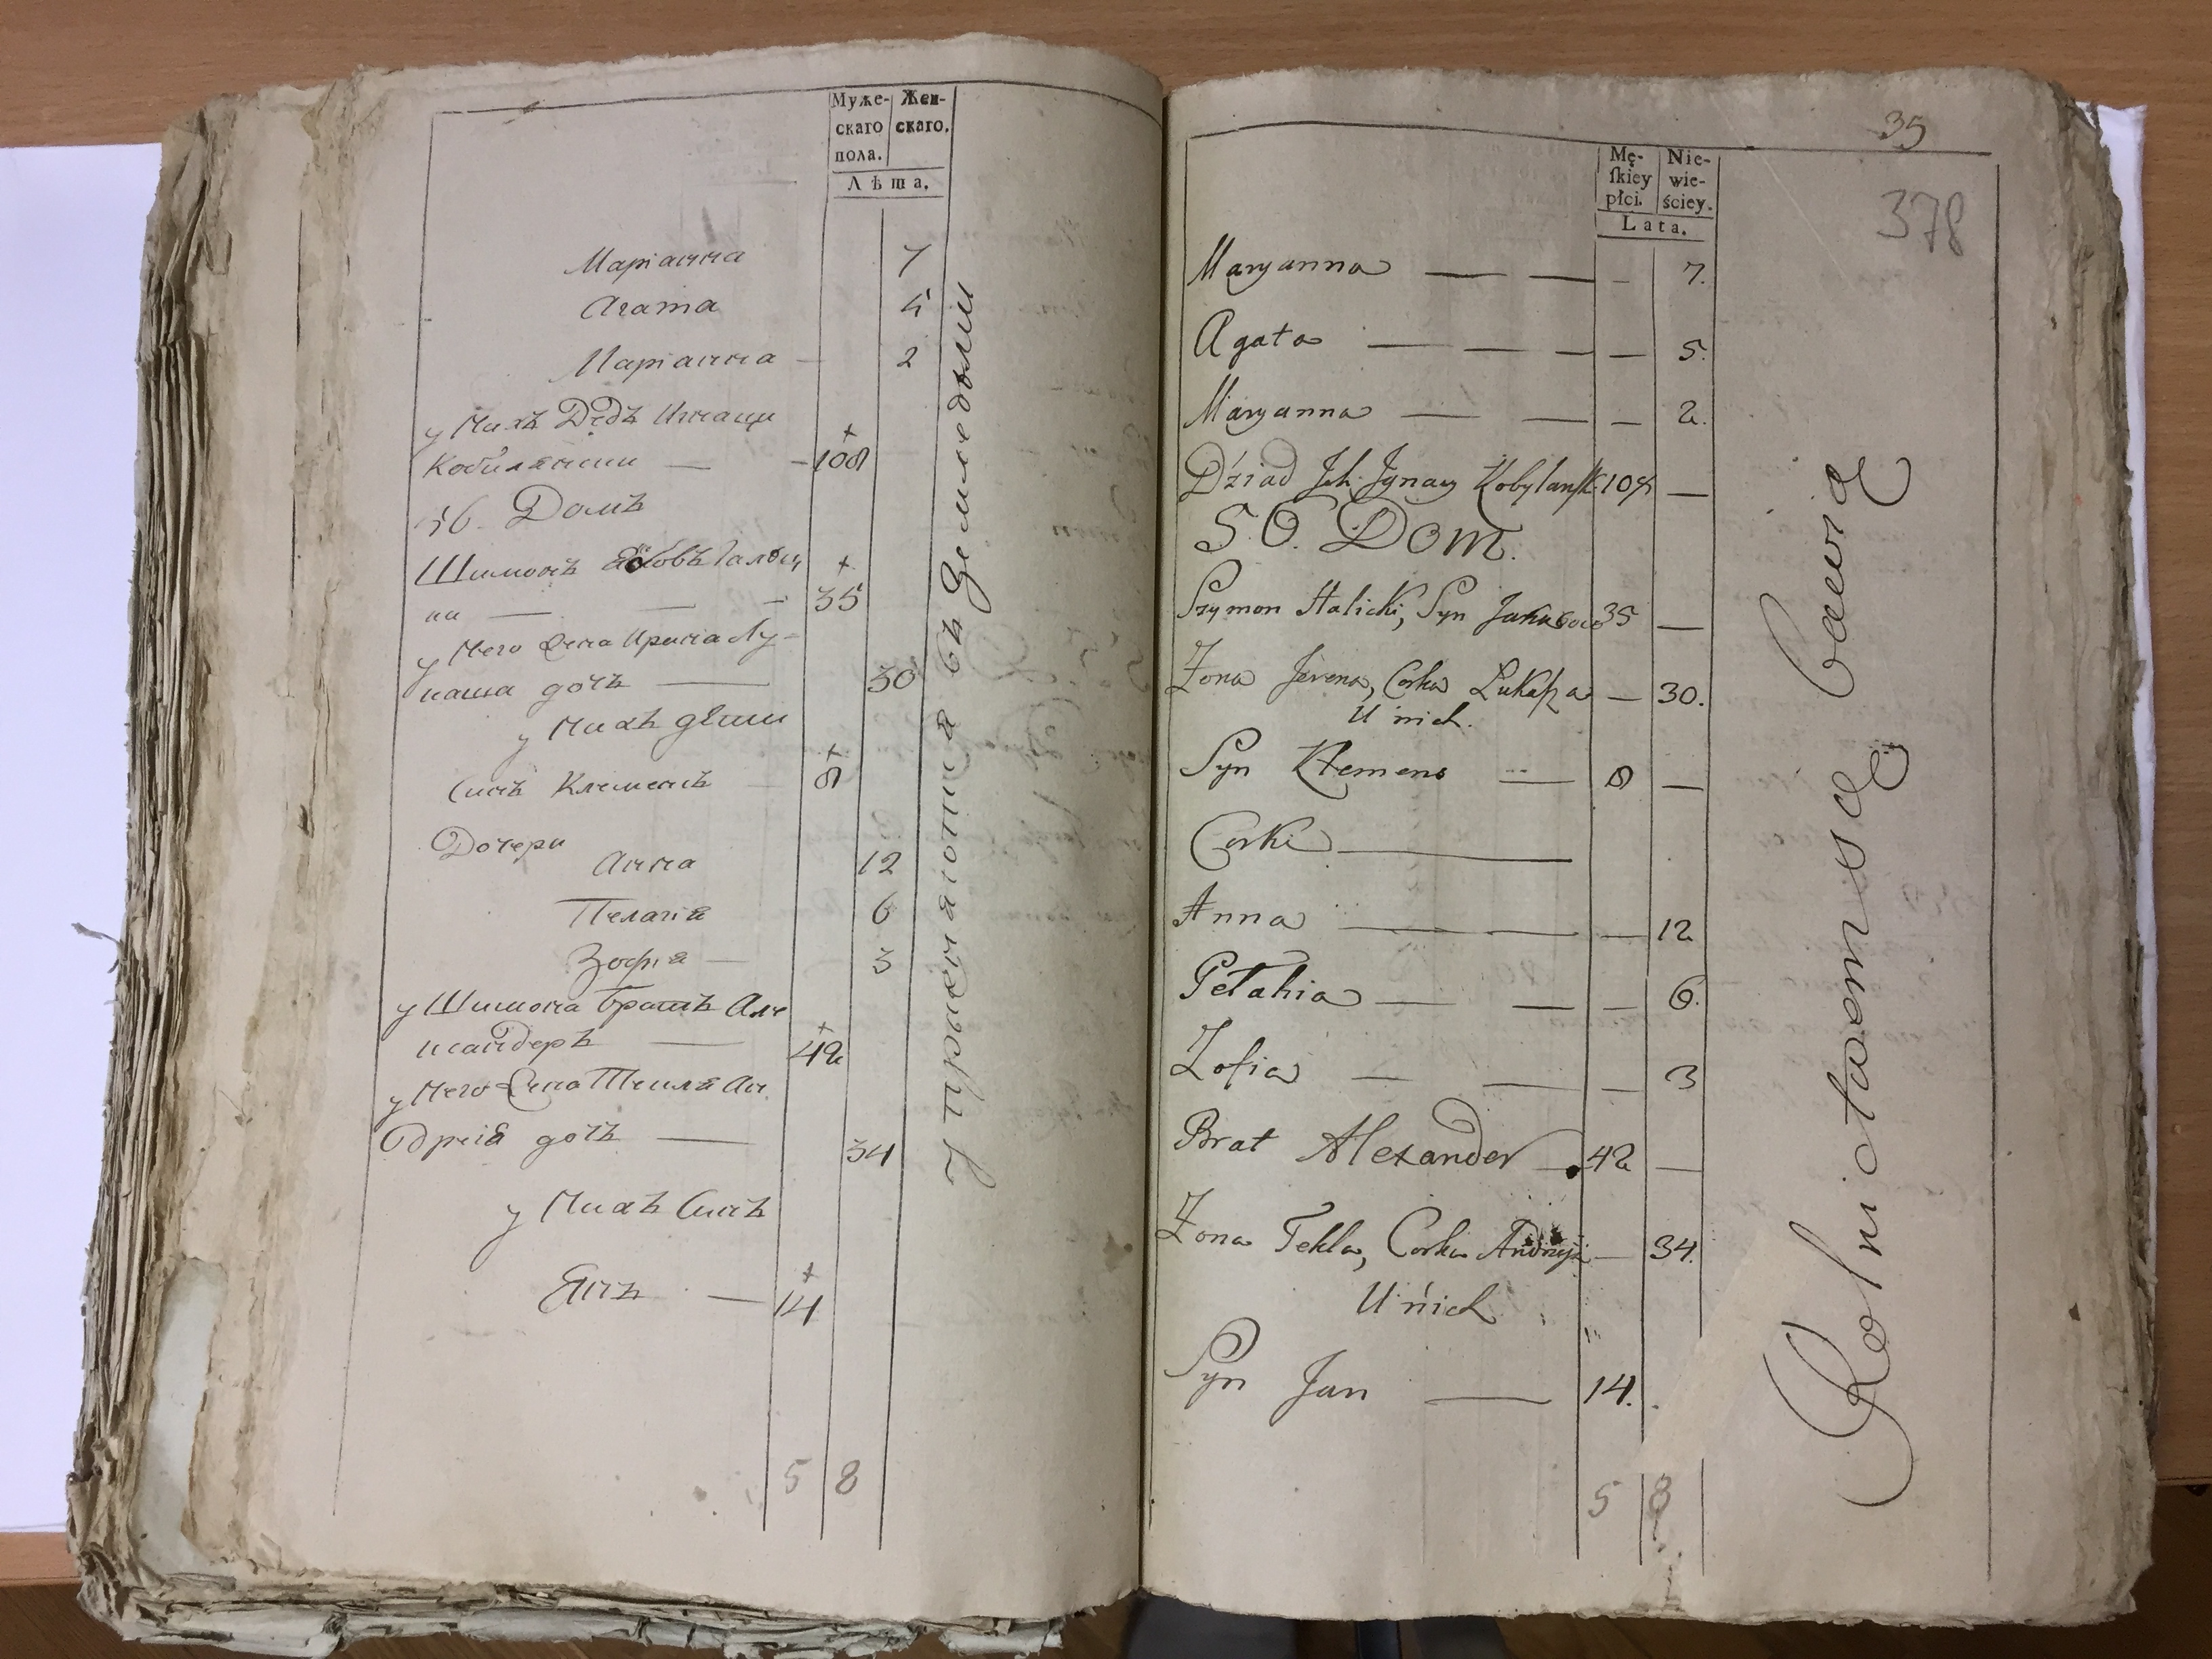 Муже- Жен-
скаго скаго.
пола.
Лѣта.
Маріанна 7
Агата 5
Маріанна — 2
у Нихъ Дѣдъ Игнаци
+
Кобилянски — — 108
Домъ
Шимонъ Яковъ Галѣц
+
ки — — — 35
у Него Жена Ирина Лу-
каша дочь — 30
у Нихъ дѣти
+
Синъ Клеменсъ — 8
Дочери
Анна 12
Пелагія 6
Зофія — 3
у Шимона братъ Але
+
ксандеръ — 42
у Него Жена Текля Ан
дрея дочь — 34
у Нихъ Синъ
+
Янъ — 14
5 8
Упражняются въ Земледѣліи
35
378
Mę- Nie-
ſkiey wie-
płci. ściey.
Lata.
Maryanna — — — 7.
Agata — — — — 5.
Maryanna — — — 2.
Dźiad Ich Jgnacy Kobylanſk: —
5.0. Dom.
Szymon Halicki, Syn Jakubow 35 —
Żona Jerena, Corka Lukaſza — 30.
U nich.
Syn Klemens — 8 —
Corki —
Anna — — — 12
Pelahia — — — 6.
Zofia — — — 3
Brat Alexander — 42 —
Żona Tekla, Corka Andrzeja — 34.
U ńich
Syn Jan — 14.
5 8
Rolnictwem się bawią